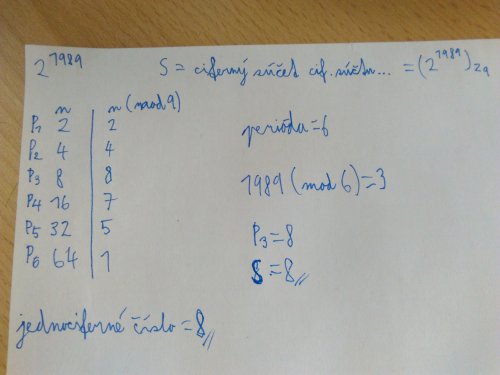 2^1989
S = ciferný súčet cif. súčtu... = (2^1989)_Z9
n | n (mod 9)
P1 2 | 2
P2 4 | 4
P3 8 | 8
P4 16 | 7
P5 32 | 5
P6 64 | 1
perióda = 6
1989 (mod 6) = 3
P3 = 8
S = 8
jednociferné číslo = 8